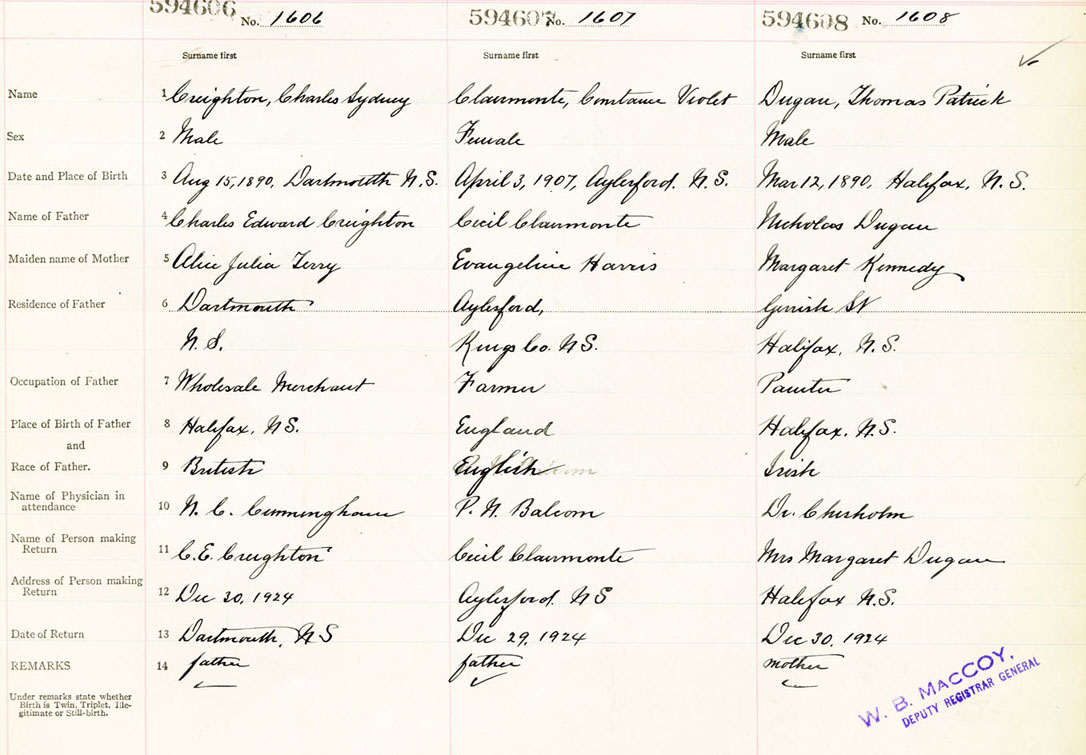 594606 No. 1606 594607 No. 1607 594608 No. 1608
Surname first Surname first Surname first
Name 1 Creighton, Charles Sydney Clairmonte, Constance Violet Dugan, Thomas Patrick
Sex 2 Male Female Male
Date and Place of Birth 3 Aug 15, 1890, Dartmouth N.S. April 3, 1907, Aylesford, N.S. Mar 12, 1890, Halifax, N.S.
Name of Father 4 Charles Edward Creighton Cecil Clairmonte Nicholas Dugan
Maiden name of Mother 5 Alice Julia Terry Evangeline Harris Margaret Kennedy
Residence of Father 6 Dartmouth Aylesford, Gerrish St
N.S. Kings Co. N.S. Halifax, N.S.
Occupation of Father 7 Wholesale Merchant Farmer Painter
Place of Birth of Father 8 Halifax, N.S. England Halifax, N.S.
and
Race of Father. 9 British English Irish
Name of Physician in
attendance 10 N. C. Cunningham P. N. Balcom Dr. Chisholm
Name of Person making
Return 11 C. E. Creighton Cecil Clairmonte Mrs Margaret Dugan
Address of Person making
Return 12 Dec 30, 1924 Aylesford. N S Halifax N.S.
Date of Return 13 Dartmouth, N S Dec 29, 1924 Dec 30, 1924
REMARKS 14 father father mother
Under remarks state whether
Birth is Twin, Triplet, Ille-
gitimate or Still-birth.
W. B. MACCOY,
DEPUTY REGISTRAR GENERAL